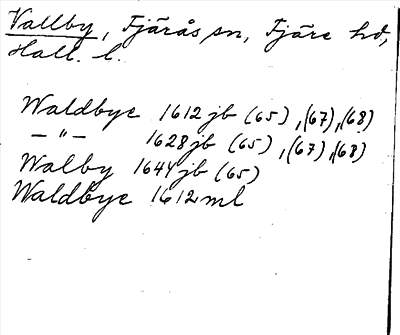 Vallby, Fjärås sn, Fjäre hd,
Hall. l.
Waldbye 1612 jb (65), (67), (68)
— " — 1628 jb (65), (67), (68)
Walby 1644 jb (65)
Waldbye 1612 ml